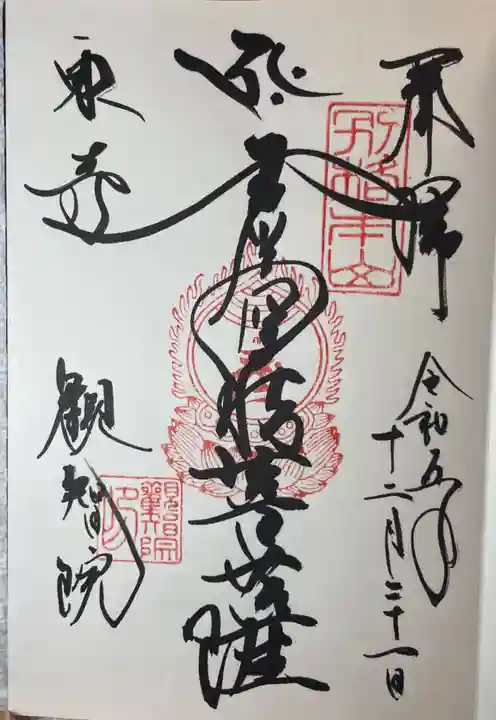 奉拝
令和五年
十二月二十一日
別格本山
虚空蔵菩薩
東寺
観智院